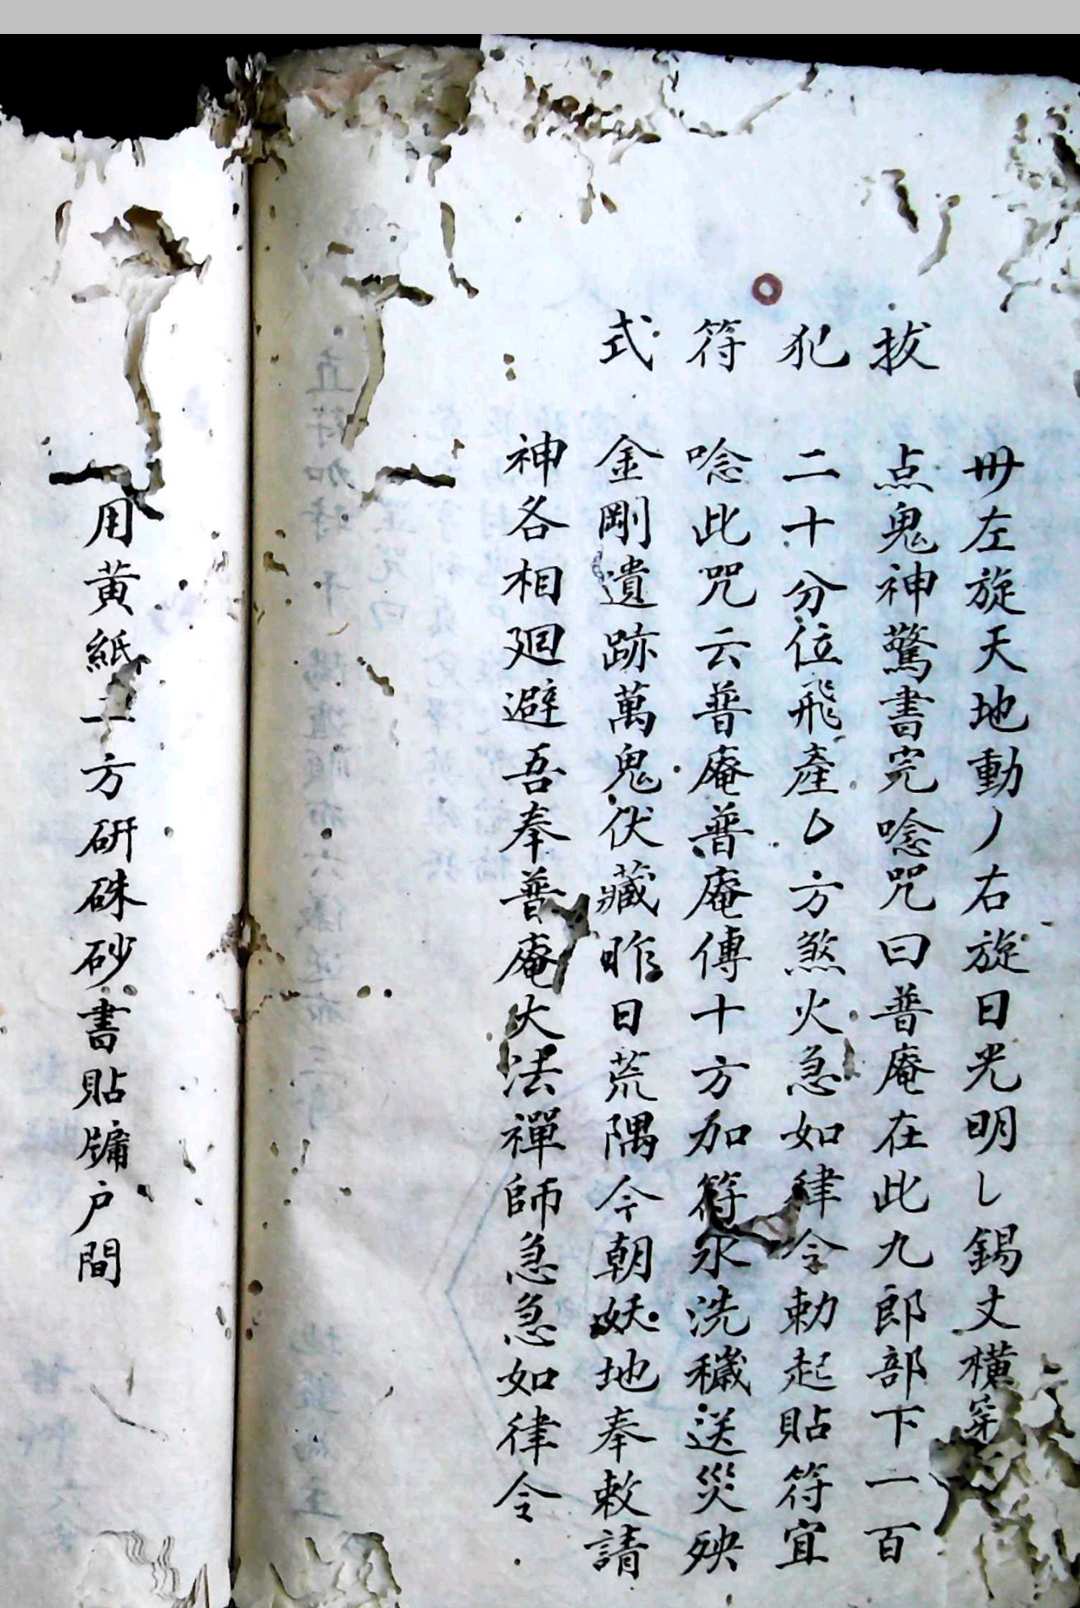 卌左旋天地動丿右旋日光明乚錫丈橫穿
拔
点鬼神驚書完唸咒曰普庵在此九郎部下一百
犯
二十分位飛產乚方煞火急如律令勅起貼符宜
符
唸此咒云普庵普庵傳十方加符水洗穢送災殃
式
金剛遺跡萬鬼伏藏昨日荒隅今朝妖地奉敕請
神各相廻避吾奉普庵大法禪師急急如律令
用黃紙一方研硃砂書貼牗户間